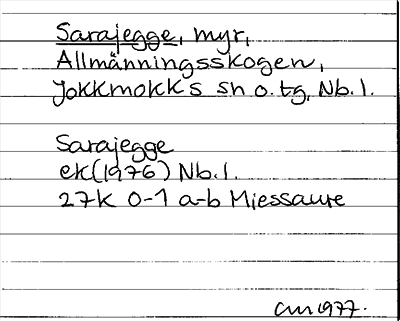 Sarajegge, myr,
Allmänningsskogen,
Jokkmokks sn o. tg, Nb. l.
Sarajegge
ek (1976) Nb. l.
27K 0-1 a-b Miessaure
CM 1977.